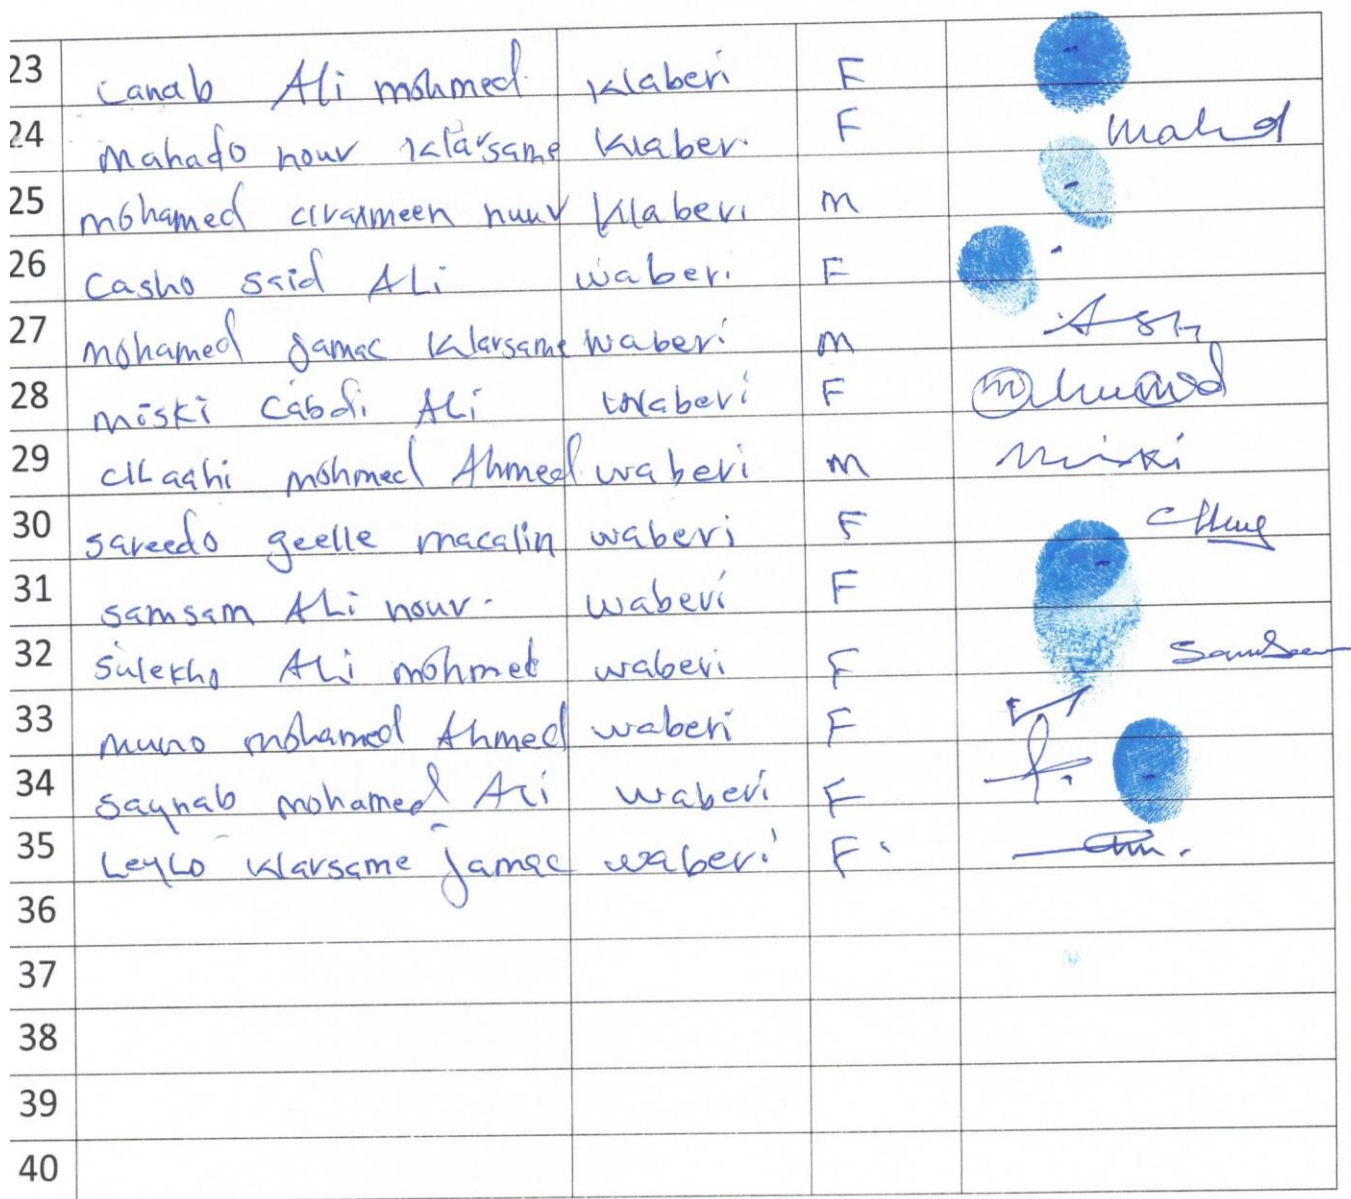 23 Canab Ali mohmed Waberi F
24 mahado nour Warsame Waberi F Mahd
25 mohamed nuur Waberi m
26 Casho said ALi waberi F
27 mohamed jamac Warsame waberi m ASh
28 miski cabdi ALi Waberi F
29 cilaahi mohmed Ahmed waberi m miski
30 sareedo geelle macalin waberi F
31 samsam ALi nour. waberi F
32 sulekho ALi mohmed waberi F
33 muno mohamed Ahmed waberi F
34 saynab mohamed Ali waberi F
35 LeyLo Warsame jamac waberi F
36
37
38
39
40